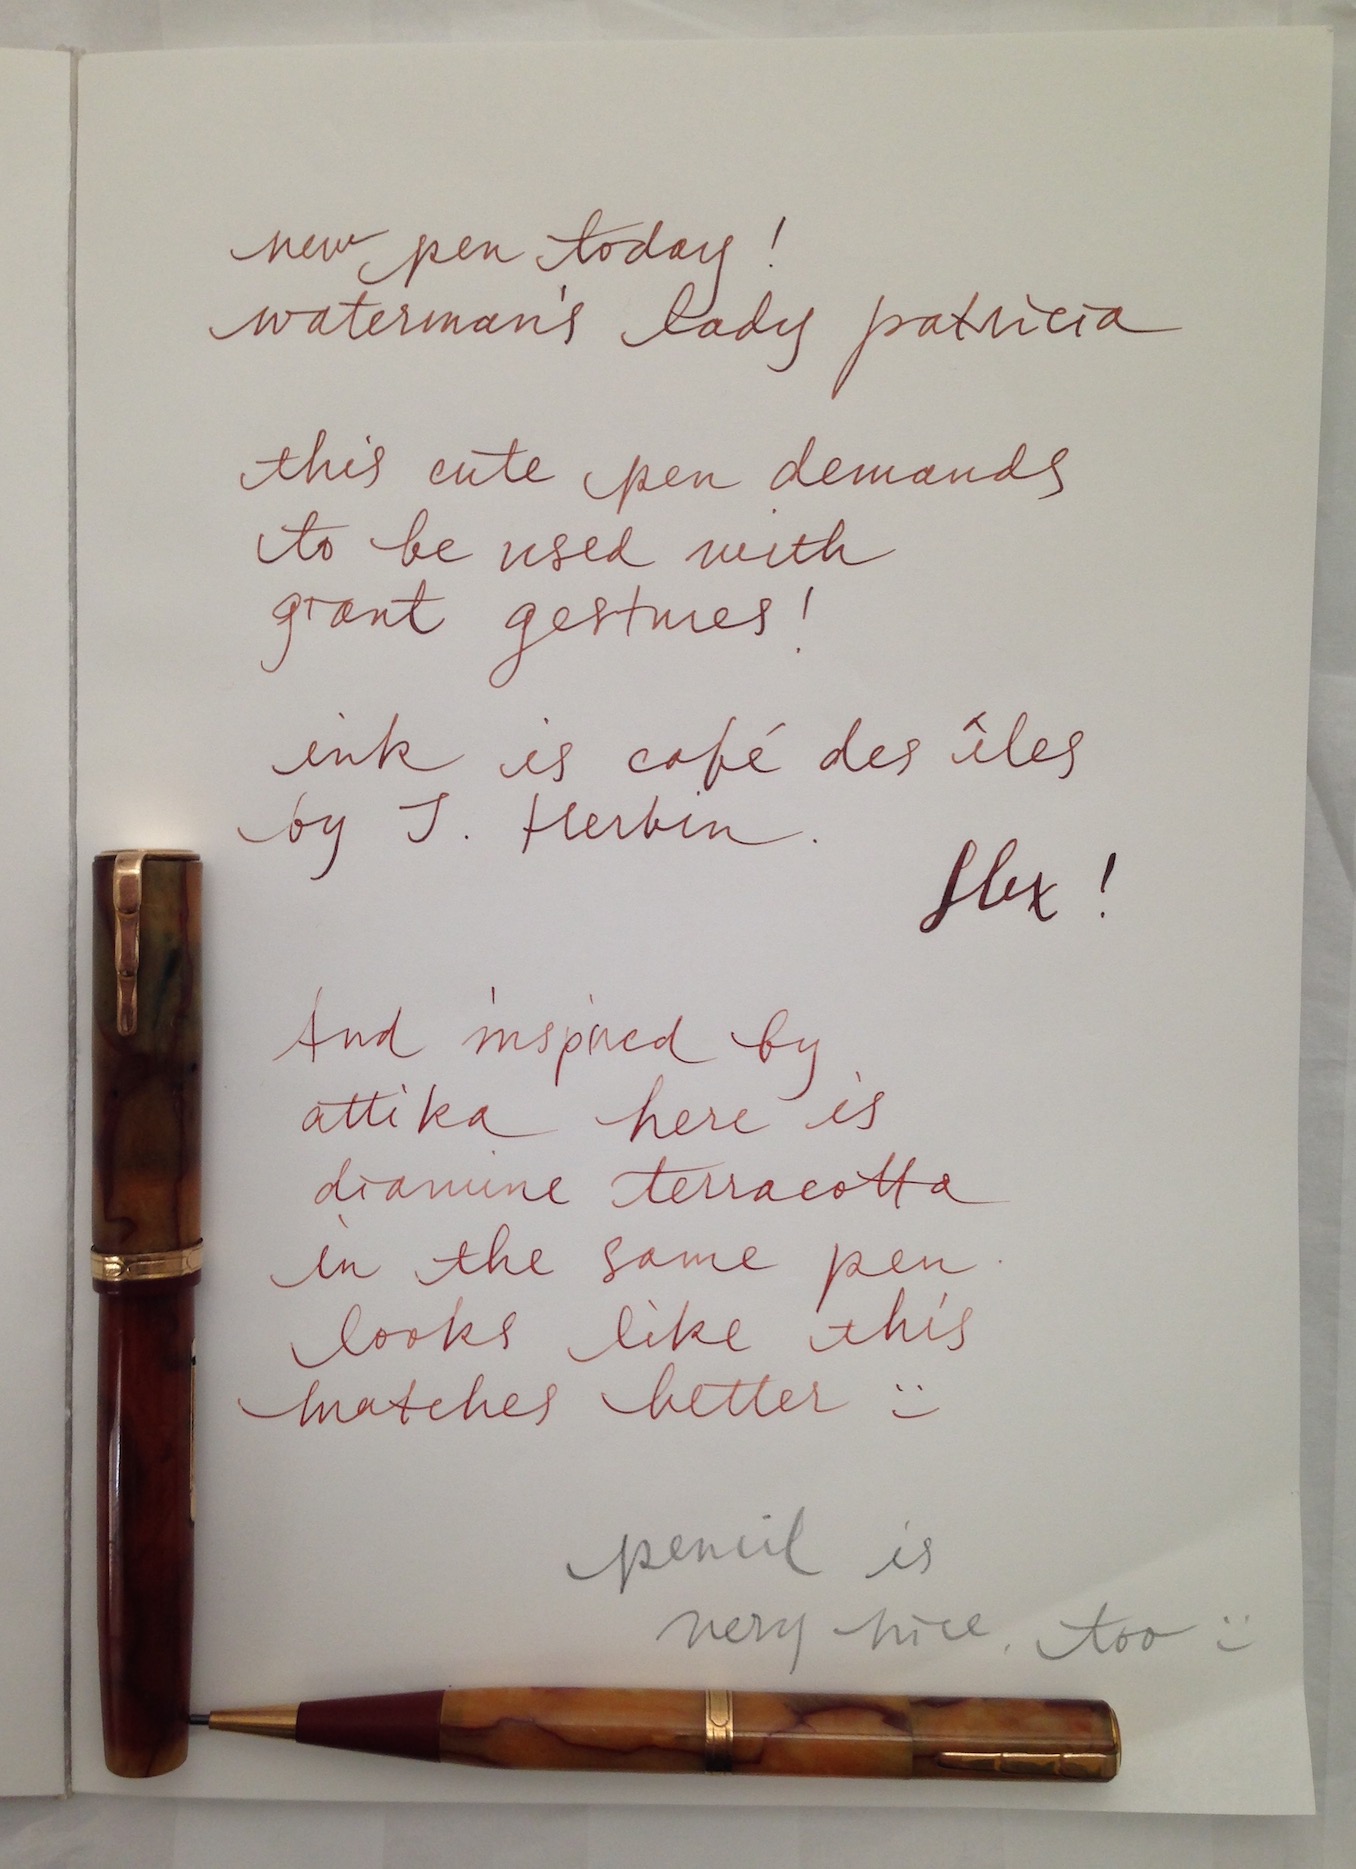 new pen today!
waterman's lady patricia
this cute pen demands
to be used with
grant gestures!
ink is café des îles
by J. Herbin.
flex!
And inspired by
attika here is
diamine terracotta
in the same pen.
looks like this
matches better :)
pencil is
very nice, too :)